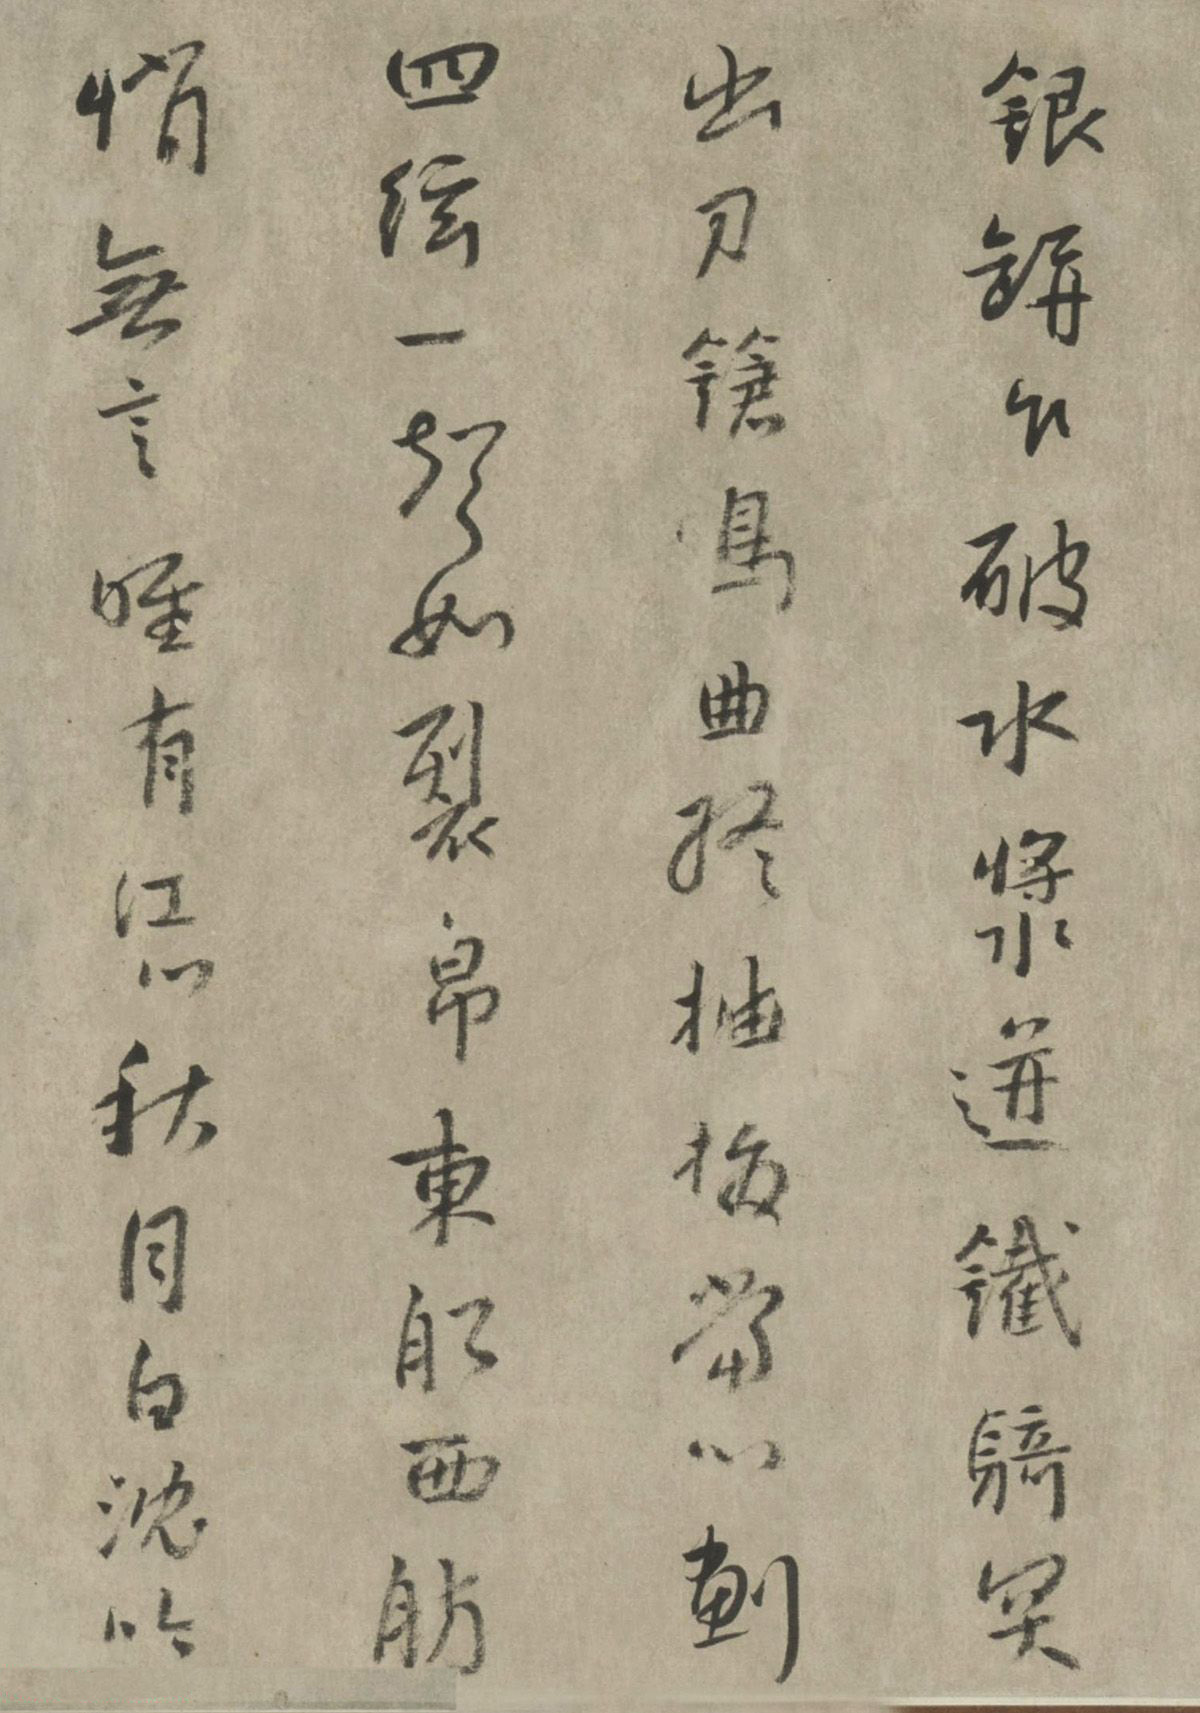 銀缾乍破水漿迸鐵騎突
出刀鎗鳴曲終抽撥當心劃
四絃一聲如裂帛東船西舫
悄無言唯有江心秋月白沈吟